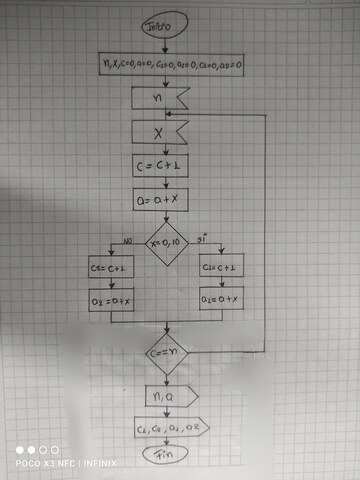 Inicio
n, x, c=0, a=0, c1=0, a1=0, c2=0, a2=0
n
x
c = c+1
a = a+x
x=0,10
NO
si
c2=c+1
c1=c+1
a2=a+x
a1=a+x
c==n
n,a
c1, c2, a1, a2
Fin
POCO X3 NFC | INFINIX